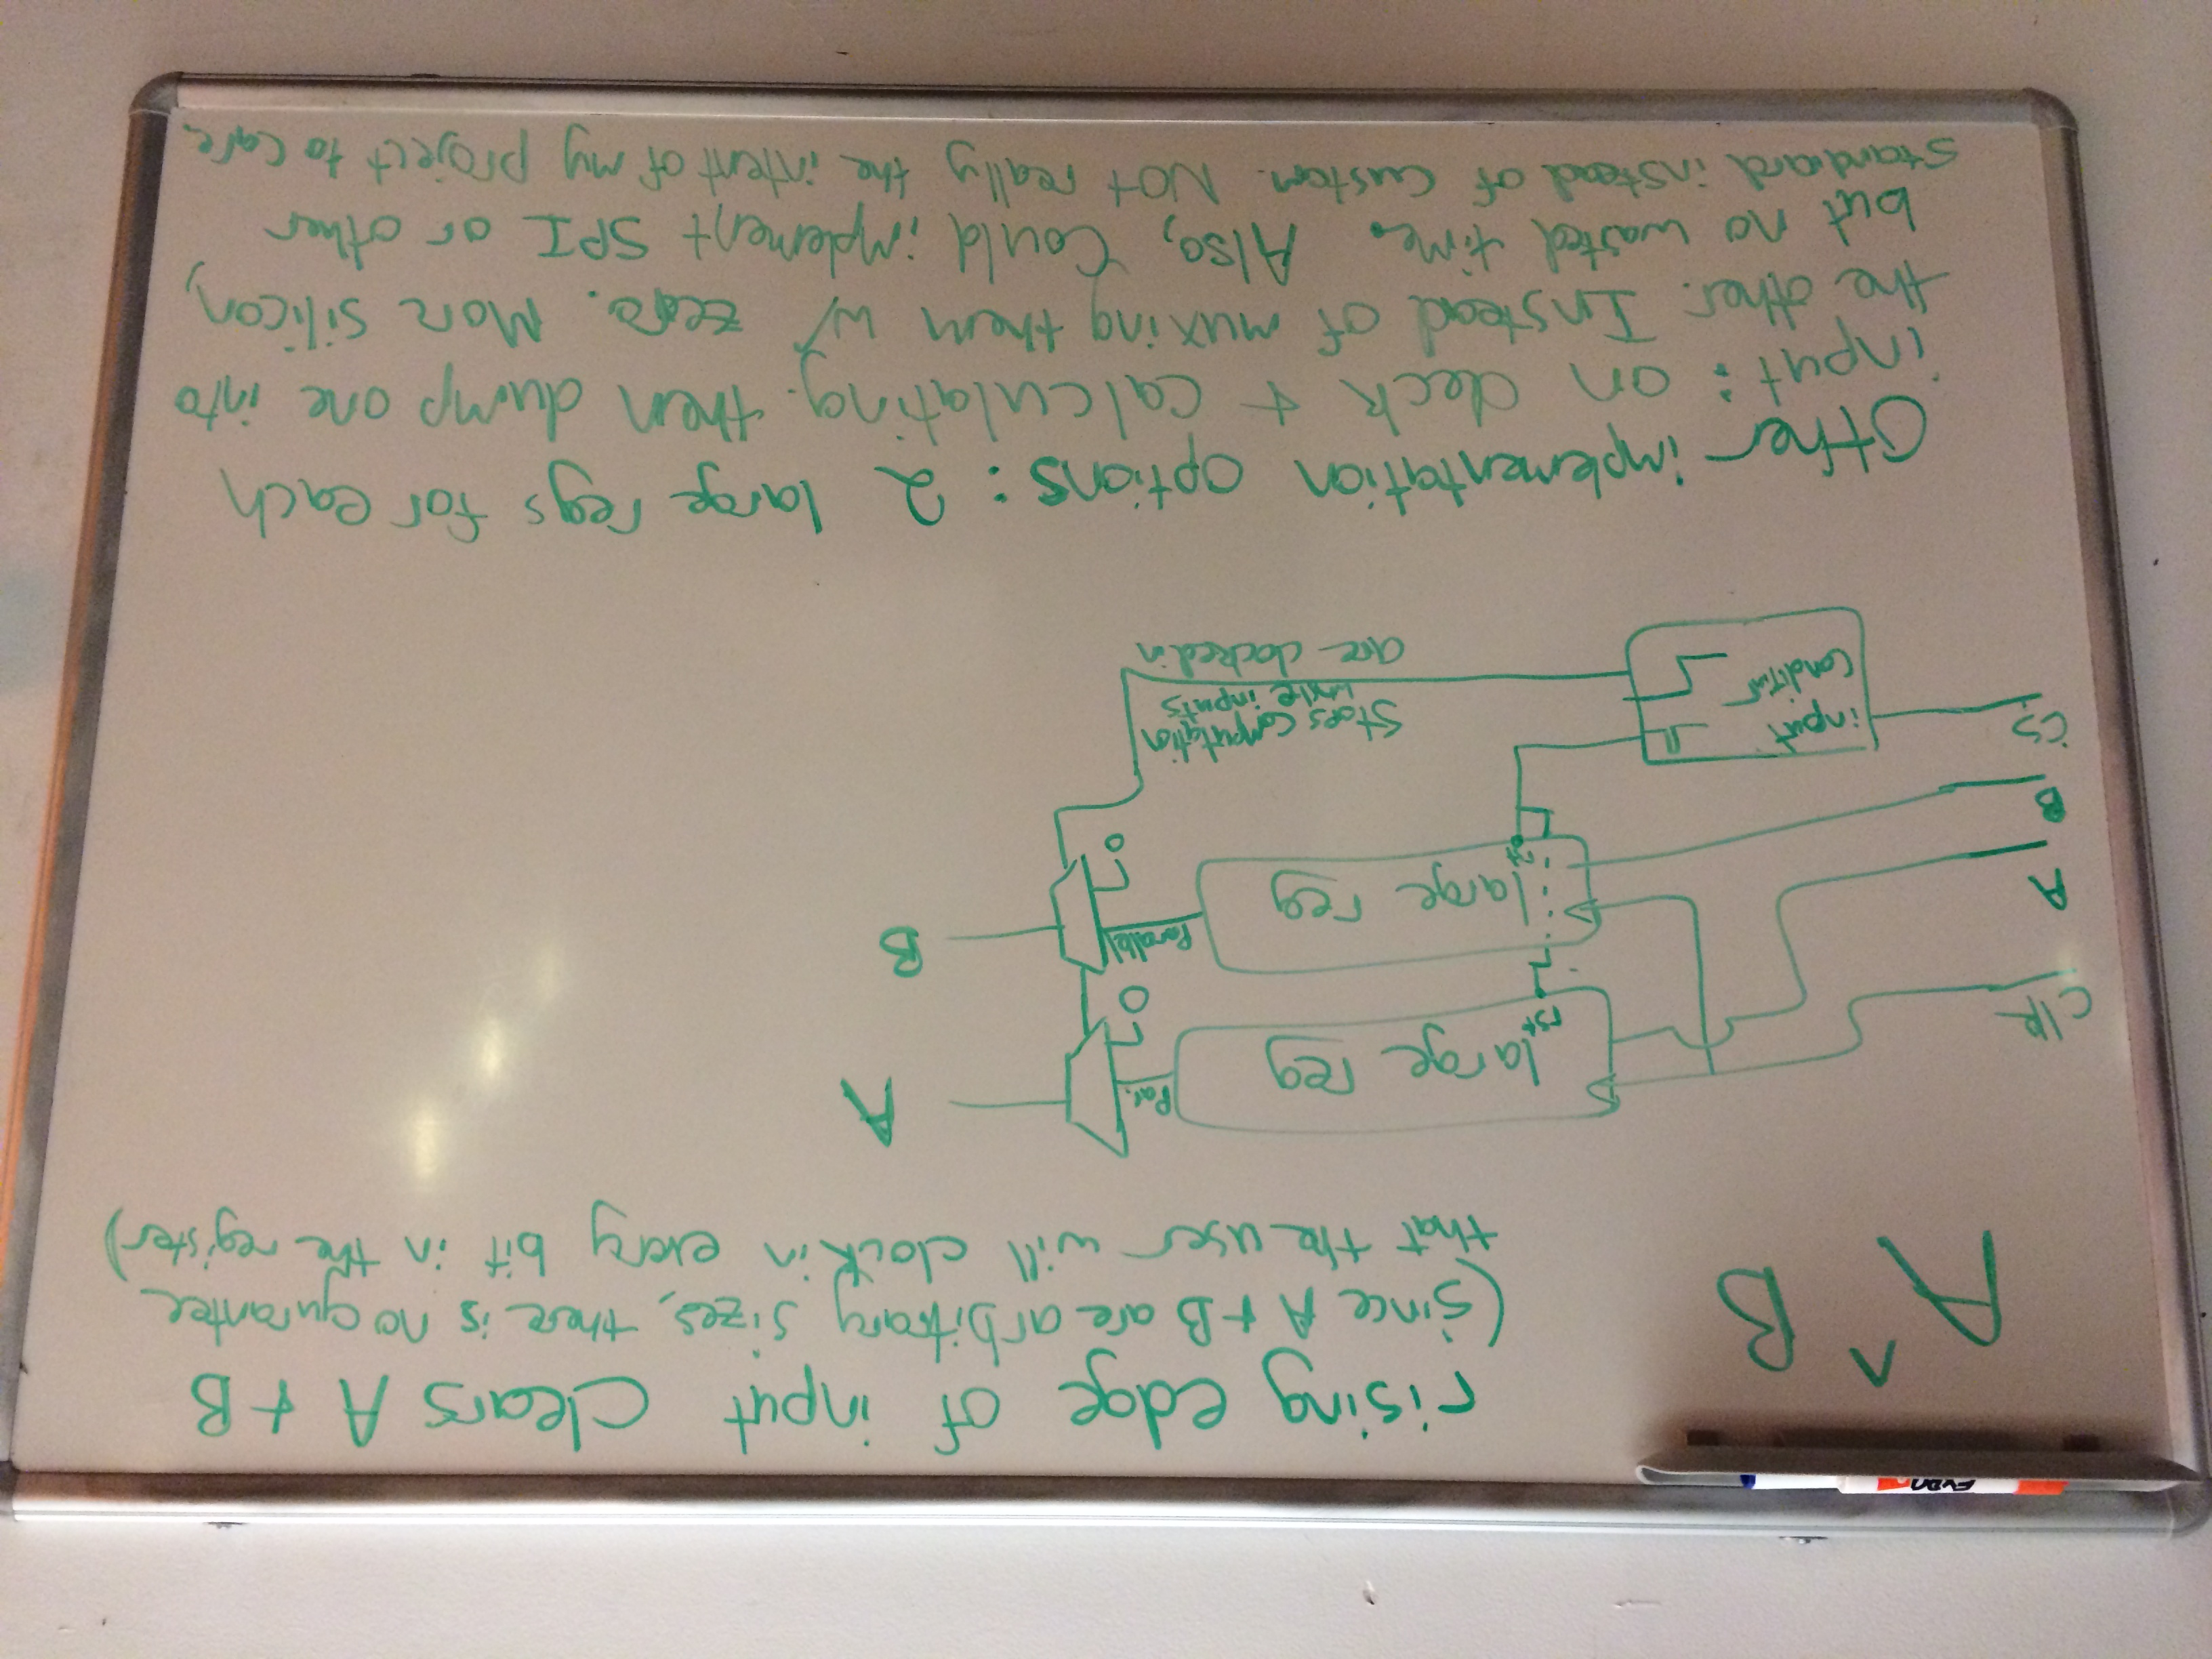 A ^ B
rising edge of input clears A + B
(since A + B are arbitrary sizes, there is no gurantee
that the user will clock in every bit in the register)
clk
A
B
CS
large reg
rst
Par.
0
A
large reg
rst
Parallel
0
B
input
Conditior
Stops computation
while inputs
are clocked in
Other implementation options: 2 large regs for each
input: on deck + calculating. then dump one into
the other. Instead of muxing them w/ zero. More silicon,
but no wasted time. Also, Could implement SPI or other
standard instead of custom. Not really the intent of my project to care.
EXPO